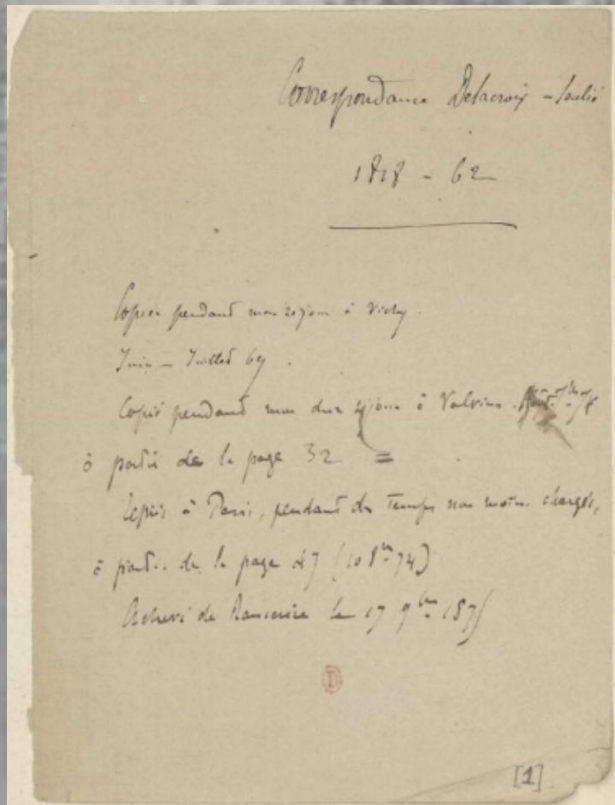 Correspondance Delacroix - Soulié
1818 - 62
Copiée pendant mon séjour à Vichy.
Juin - Juillet 69.
Copié pendant mon séjour à Valvins.
à partir de la page 32 =
à Paris, pendant des temps non moins chargés,
à partir de la page 47 (10 8bre 74)
Achevé de transcrire le 17 9bre 1875
[1]